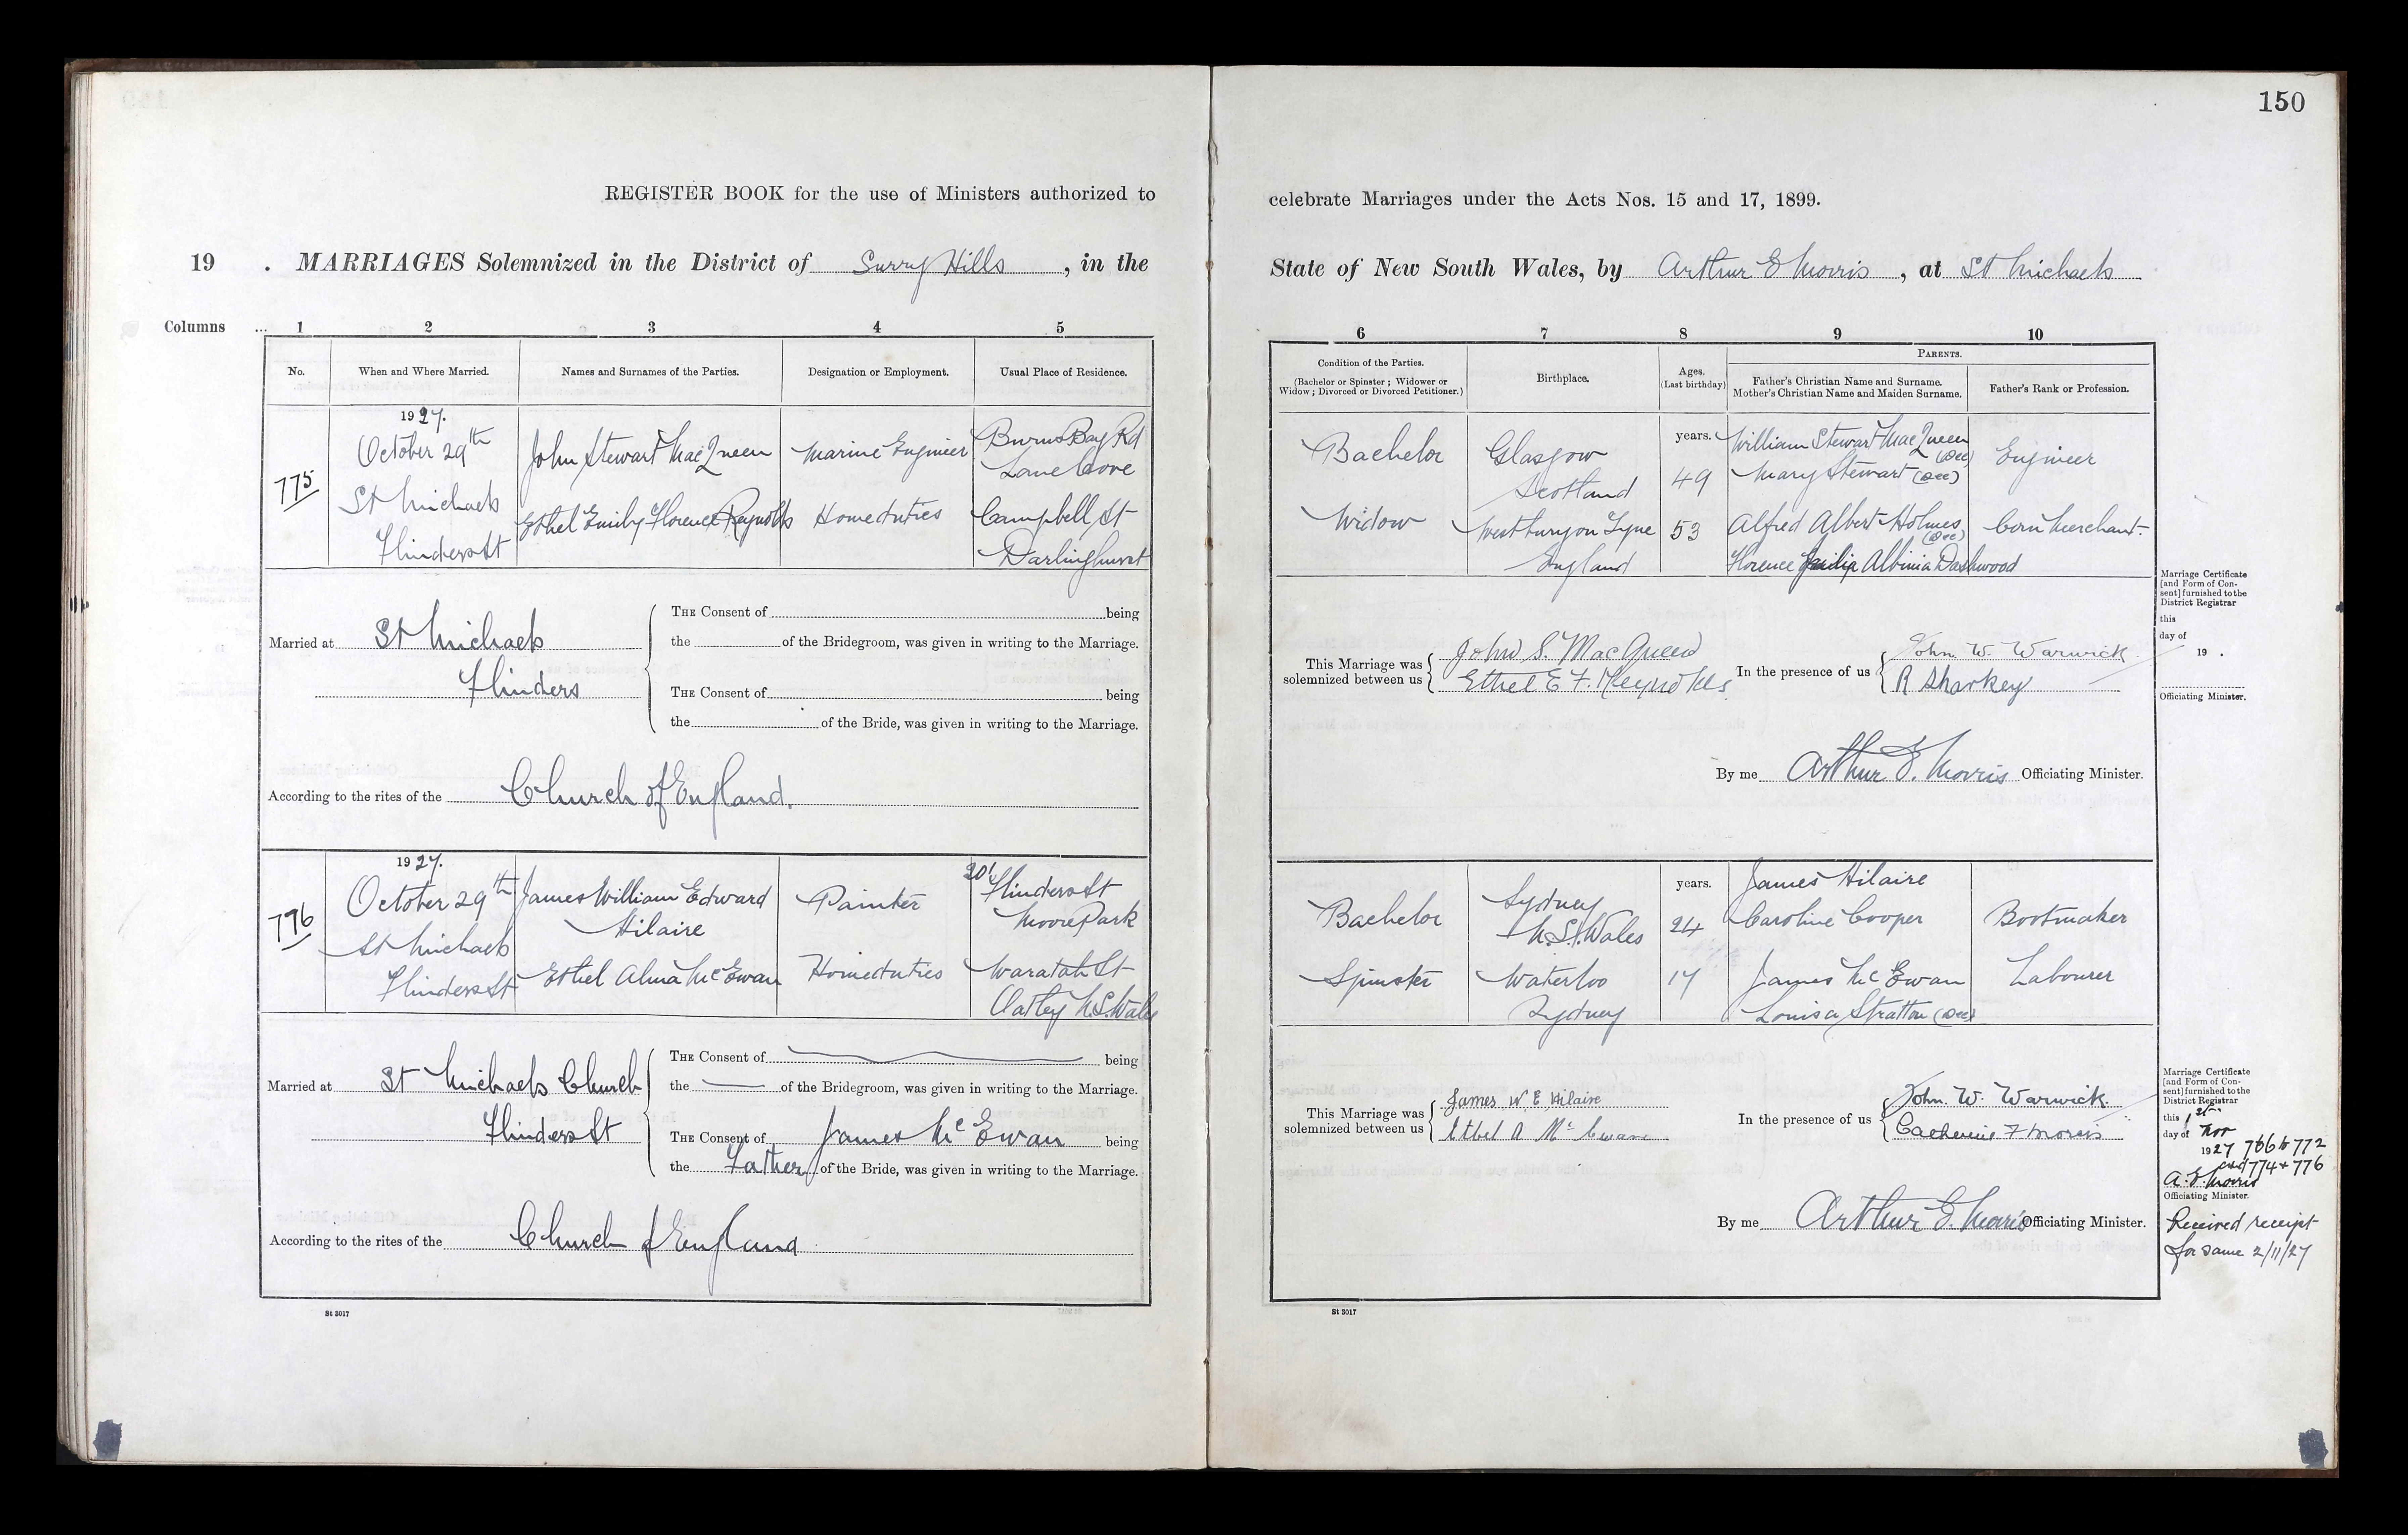 150
REGISTER BOOK for the use of Ministers authorized to
celebrate Marriages under the Acts Nos. 15 and 17, 1899.
19 . MARRIAGES Solemnized in the District of Surry Hills, in the
State of New South Wales, by Arthur E Morris, at St Michaels
Columns ... 1 2 3 4 5
6 7 8 9 10
No. When and Where Married. Names and Surnames of the Parties. Designation or Employment. Usual Place of Residence.
Condition of the Parties.
(Bachelor or Spinster; Widower or
Widow; Divorced or Divorced Petitioner.)
Birthplace.
Ages.
(Last birthday)
PARENTS.
Father's Christian Name and Surname.
Mother's Christian Name and Maiden Surname.
Father's Rank or Profession.
775
1927.
October 29th
St Michaels
Flinders St
John Stewart MacQueen
Ethel Emily Florence Reynolds
Marine Engineer
Home duties
Burns Bay Rd
Lane Cove
Campbell St
Darlinghurst
Bachelor
Widow
Glasgow
Scotland
Westbury on Tyne
England
years.
49
53
William Stewart MacQueen
(Dec)
Mary Stewart (Dec)
Alfred Albert Holmes
(Dec)
Florence Albinia Dashwood
Engineer
Corn Merchant.
Married at St Michaels
Flinders
THE Consent of being
the of the Bridegroom, was given in writing to the Marriage.
THE Consent of being
the of the Bride, was given in writing to the Marriage.
According to the rites of the Church of England.
This Marriage was
solemnized between us
John S. MacQueen
Ethel E F. Reynolds
In the presence of us
John. W. Warwick
R Sharkey
By me Arthur E. Morris Officiating Minister.
Marriage Certificate
[and Form of Con-
sent] furnished to the
District Registrar
this
day of
19 .
Officiating Minister.
776
1927.
October 29th
St Michaels
Flinders St
James William Edward
Hilaire
Ethel Alma McEwan
Painter
Home duties
201
Flinders St
Moore Park
Waratah St
Oatley N.S.Wales
Bachelor
Spinster
Sydney
N.S.Wales
Waterloo
Sydney
years.
24
17
James Hilaire
Caroline Cooper
James McEwan
Louisa Stratton (Dec)
Bootmaker
Labourer
Married at St Michaels Church
Flinders St
THE Consent of being
the of the Bridegroom, was given in writing to the Marriage.
THE Consent of James McEwan being
the Father of the Bride, was given in writing to the Marriage.
According to the rites of the Church of England
This Marriage was
solemnized between us
James W. E. Hilaire
Ethel A McEwan
In the presence of us
John. W. Warwick.
Catherine F Morris
By me Arthur E. Morris Officiating Minister.
Marriage Certificate
[and Form of Con-
sent] furnished to the
District Registrar
this 1st
day of Nov
1927 766 to 772
and 774 + 776
A. E. Morris
Officiating Minister.
Received receipt
for same 2/11/27
St 3017
St 3017